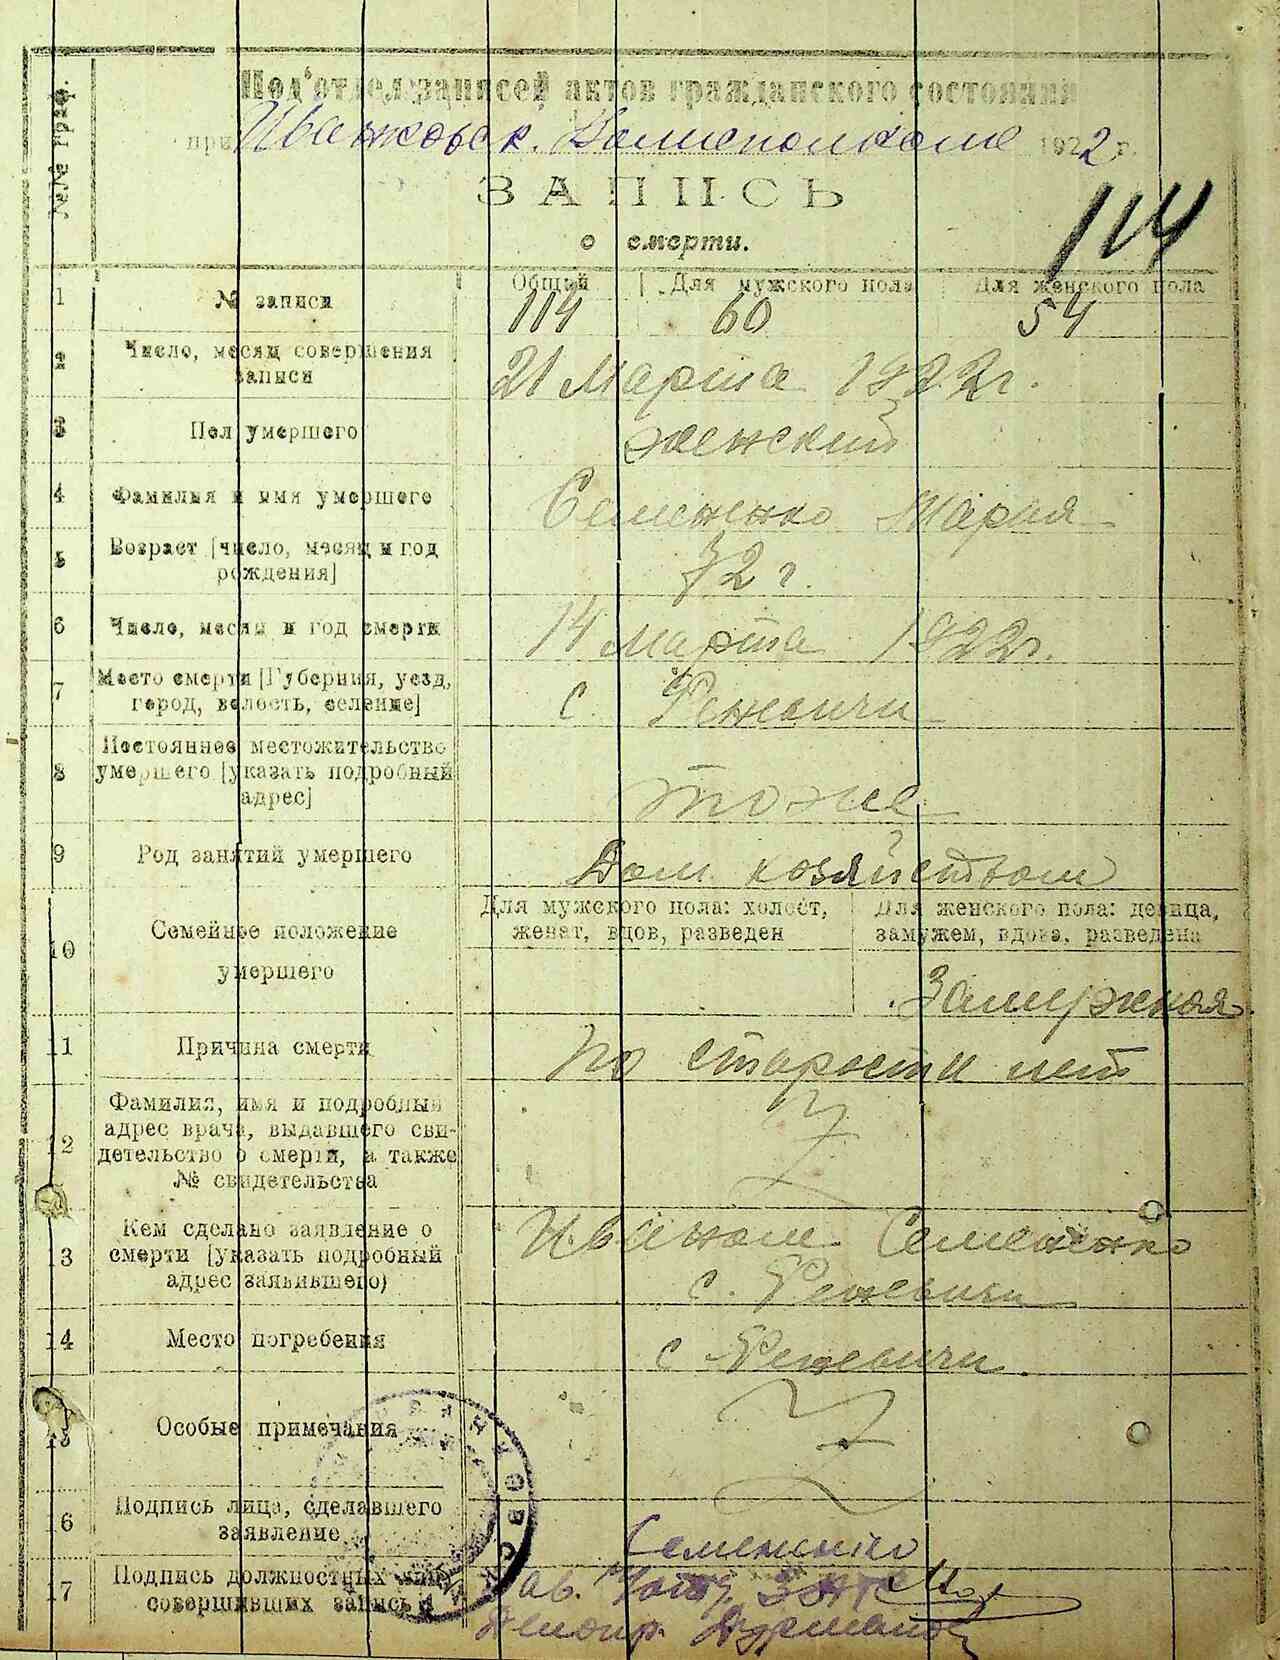 №№ граф.
Под'отдел записей актов гражданского состояния
при Иваньковск. Волисполкоме 1922 г.
ЗАПИСЬ
о смерти.
114
Общий Для мужского пола Для женского пола
1 № записи 114 60 54
2 Число, месяц совершения записи 21 Марта 1922 г.
3 Пол умершего женский
4 Фамилия и имя умершего Семененко Мария
5 Возраст [число, месяц и год рождения] 72 г.
6 Число, месяц и год смерти 14 марта 1922 г.
7 Место смерти [Губерния, уезд, город, волость, селение] с.
8 Постоянное местожительство умершего [указать подробный адрес] тоже
9 Род занятий умершего Дом. хозяйством
10 Семейное положение умершего
Для мужского пола: холост, женат, вдов, разведен
Для женского пола: девица, замужем, вдова, разведена
Замужняя
11 Причина смерти по старости лет
12 Фамилия, имя и подробный адрес врача, выдавшего свидетельство о смерти, а также № свидетельства
13 Кем сделано заявление о смерти [указать подробный адрес заявившего) Иваном Семененко
с.
14 Место погребения с
15 Особые примечания
16 Подпись лица, сделавшего заявление Семененко
17 Подпись должностных лиц совершивших запись Зав.